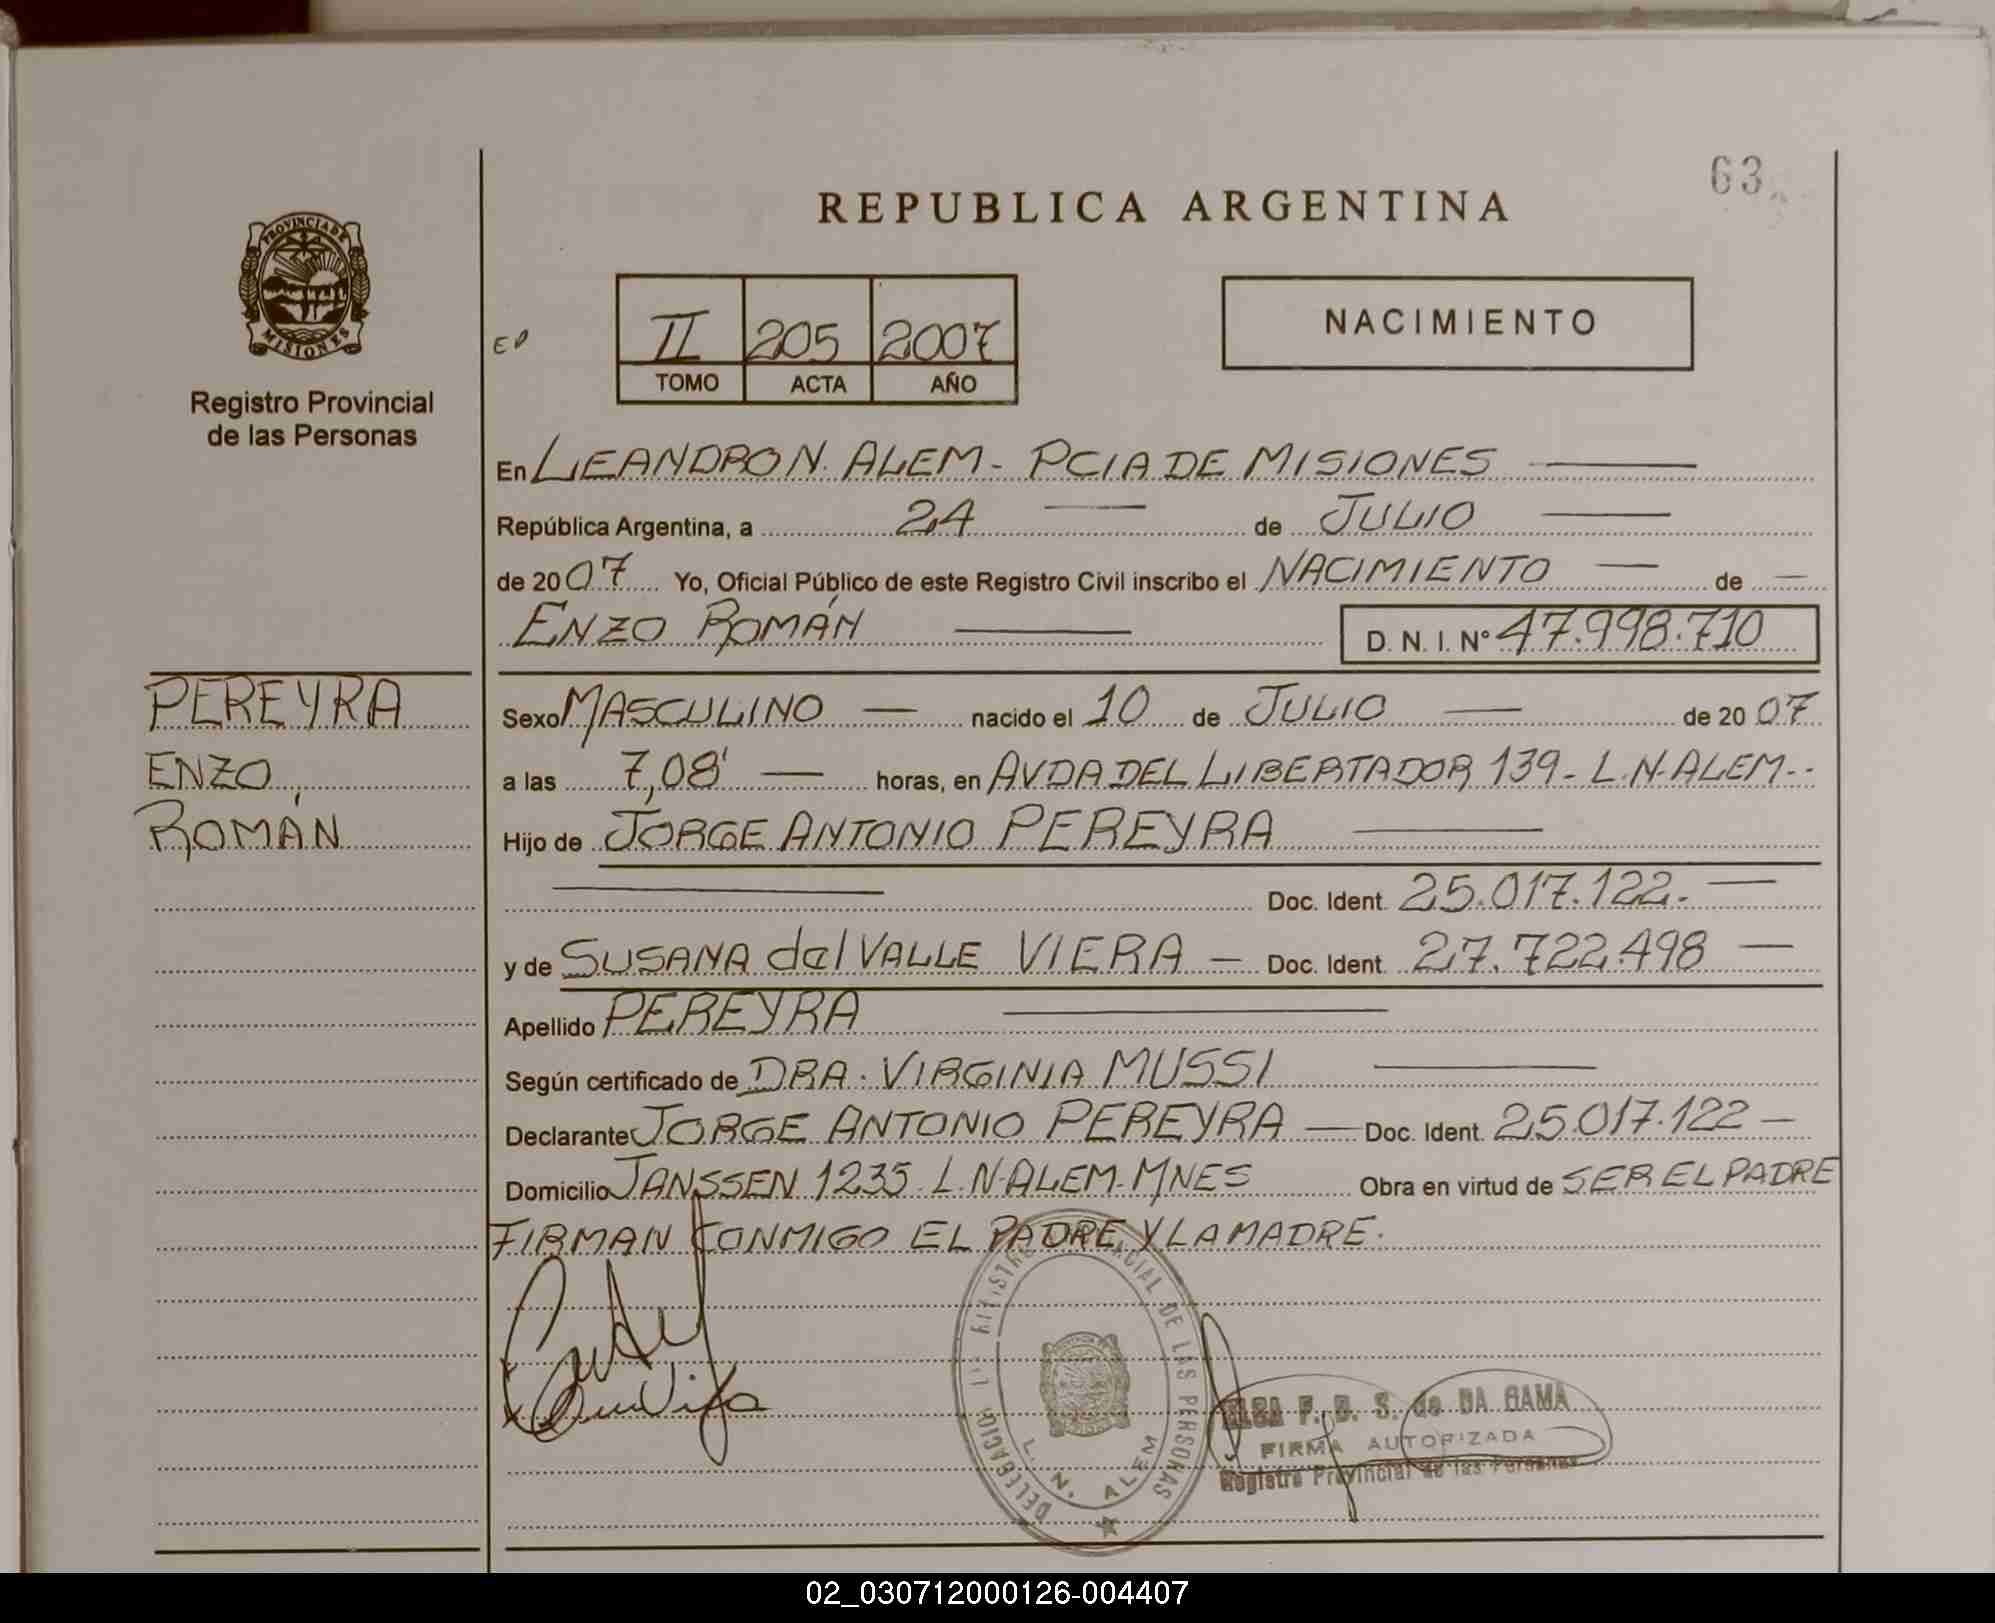 63
REPUBLICA ARGENTINA
PROVINCIA DE
MISIONES
Registro Provincial
de las Personas
II 205 2007
TOMO ACTA AÑO
NACIMIENTO
En LEANDRO N. ALEM - PCIA DE MISIONES
República Argentina, a 24 de JULIO
de 2007 Yo, Oficial Público de este Registro Civil inscribo el NACIMIENTO de
ENZO ROMÁN D. N. I. Nº 47.998.710
PEREYRA
ENZO
ROMÁN
Sexo MASCULINO nacido el 10 de JULIO de 2007
a las 7,08' horas, en AVDA DEL LIBERTADOR 139 - L.N. ALEM -
Hijo de JORGE ANTONIO PEREYRA
Doc. Ident. 25.017.122.
y de SUSANA del VALLE VIERA Doc. Ident. 27.722.498
Apellido PEREYRA
Según certificado de DRA. VIRGINIA MUSSI
Declarante JORGE ANTONIO PEREYRA Doc. Ident. 25.017.122
Domicilio JANSSEN 1235 L.N. ALEM. MNES Obra en virtud de SER EL PADRE
FIRMAN CONMIGO EL PADRE Y LA MADRE.
DE LAS PERSONAS
L. N. ALEM
F. B. S. de DA GAMA
FIRMA AUTORIZADA
Registro Provincial de las Personas
02_030712000126-004407